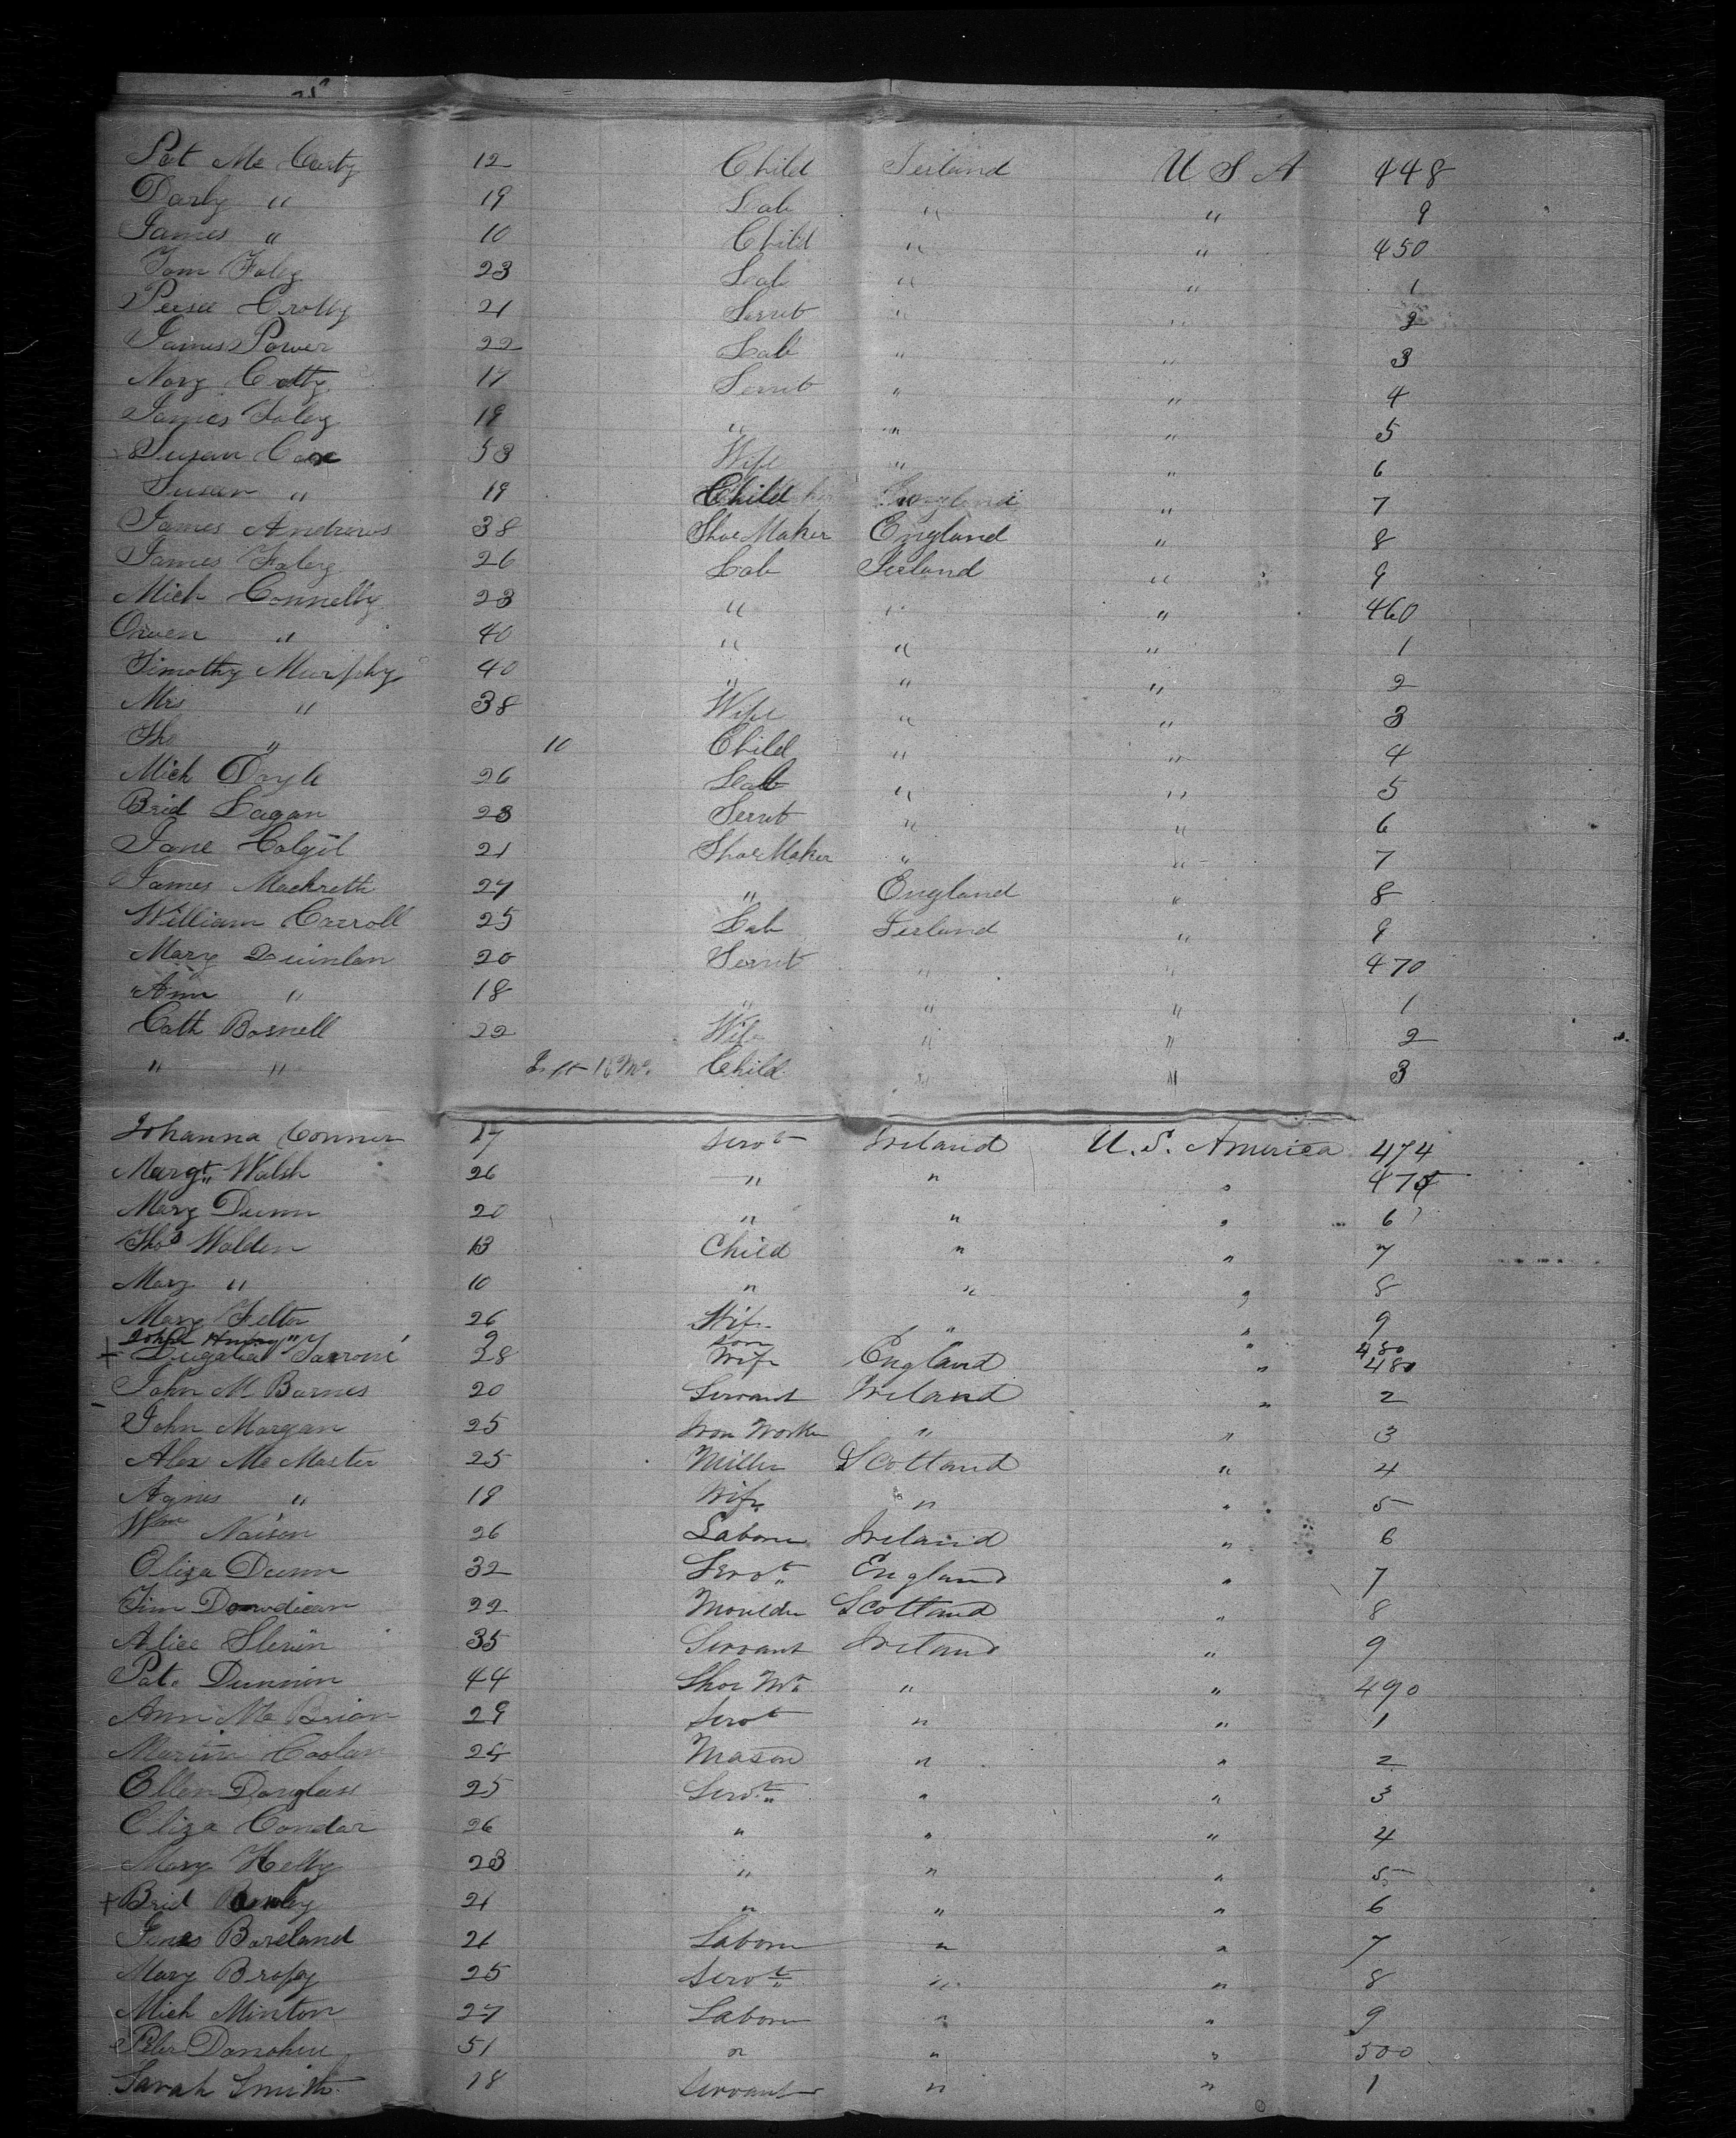 Pat Mc Carty 12 Child Ireland U S A 448
Darby " 19 Lab " " 9
James " 10 Child " " 450
Tom Foley 23 Lab " " 1
Crotty 21 Servt " " 2
James Power 22 Lab " " 3
Nory 17 Servt " " 4
James Foley 19 " " " 5
Susan Cox 53 Wife " " 6
Susan " 19 Child " " 7
James Andrews 38 Shoe Maker England " 8
James Foley 26 Lab Ireland " 9
Mich Connelly 23 " " " 460
Owen " 40 " " " 1
Timothy Murphy 40 " " " 2
Mrs " 38 Wife " " 3
Tho " 10 Child " " 4
Mich Doyle 26 Lab " " 5
Brid Lagan 23 Servt " " 6
Jane Colgil 21 Shoe Maker " " 7
James Mackreth 27 " England " 8
William Carroll 25 Lab Ireland " 9
Mary Quinlan 20 Servt " " 470
Ann " 18 " " " 1
Cath Bosnell 22 Wife " " 2
" " Inft Mos. Child " " 3
Johanna Conner 17 Servt Ireland U. S. America 474
Margt. Walsh 26 " " " 475
Mary Dunn 20 " " " 6
Thos Walden 13 Child " " 7
Mary " 10 " " " 8
Mary Felter 26 Wife " " 9
John " 9 Son " 480
+ 28 Wife England " 480
John M Barnes 20 Servant Ireland " 2
John Morgan 25 Iron Worker " " 3
Alex Mc Master 25 Miller Scotland " 4
Agnes " 19 Wife " " 5
Wm Naison 26 Laborer Ireland " 6
Eliza Dunn 32 Servt. England " 7
Jim 22 Moulder Scotland " 8
Alice Slevin 35 Servant Ireland " 9
Pat. Dunnion 44 Shoe Mr " " 490
Ann Mc Brian 29 Servt " " 1
Martin Coolan 24 Mason " " 2
Ellen Douglass 25 Servt. " " 3
Eliza Condar 26 " " " 4
Mary Kelly 23 " " " 5
+ Brid 21 " " " 6
James Boreland 21 Laborer " " 7
Mary Bropy 25 Servt. " " 8
Mich Minton 27 Laborer " " 9
Peter Donohue 51 " " " 500
Sarah Smith 18 Servant " " 1